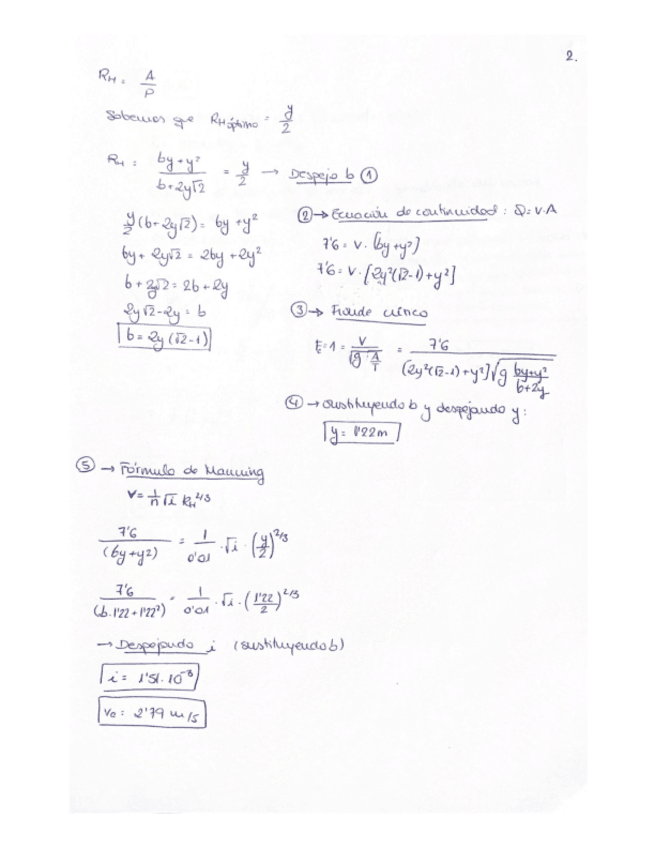 2.
R_H = A/P
Sabemos que R_H óptimo = y/2
R_H = (by+y²)/(b+2y√2) = y/2 → Despejo b ①
y/2 (b+2y√2) = by+y²
by+2y√2 = 2by+2y²
b+2y√2 = 2b+2y
2y√2-2y = b
b = 2y(√2-1)
② → Ecuación de continuidad: Q=V·A
7'6 = V·(by+y²)
7'6 = V·[2y²(√2-1)+y²]
③ → Froude crítico
F_c=1 = V/√(g·A/T) = 7'6/((2y²(√2-1)+y²)√(g (by+y²)/(b+2y)))
④ → sustituyendo b y despejando y:
y = 1'22m
⑤ → Fórmula de Manning
V = 1/n √i R_H^2/3
7'6/(by+y²) = 1/0'01 · √i · (y/2)^2/3
7'6/(b·1'22+1'22²) = 1/0'01 · √i · (1'22/2)^2/3
→ Despejando i (sustituyendo b)
i = 1'51·10⁻³
Vc = 2'79 m/s